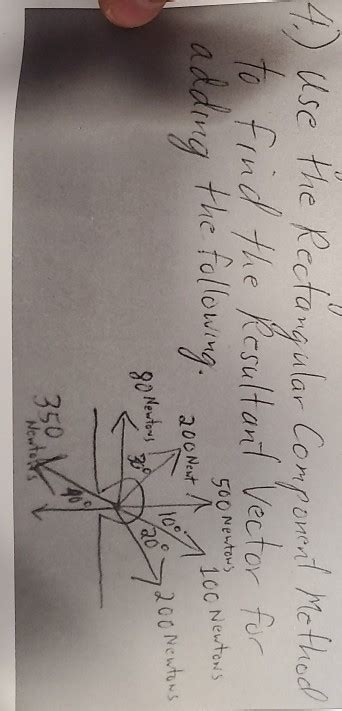 4.) Use the Rectangular Component Method
to find the Resultant Vector for
adding the following.
500 Newtons
200 Newt
100 Newtons
10°
80 Newtons
30°
20°
200 Newtons
40°
350
Newtons